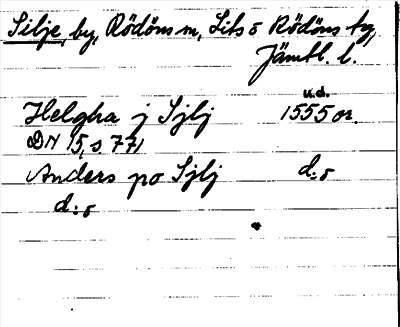 Silje, by, Rödöns sn, Lits o Rödöns tg,
Jämtl. l.
u.d.
Helgha j Sjlj 1555 or.
DN 15, s. 771
Anders po Sjlj d:o
d:o